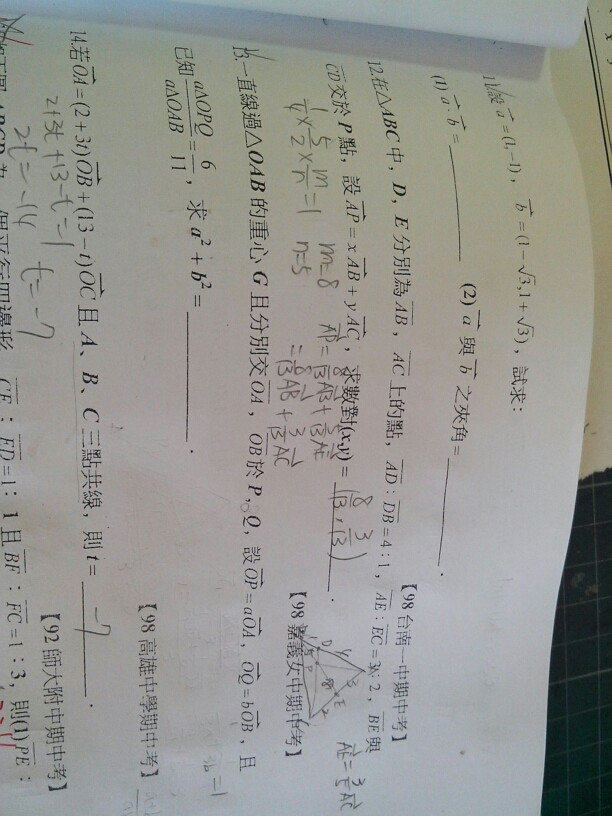 11.設 a=(1,-1), b=(1-√3,1+√3), 試求:
(1) a·b= ________ (2) a 與 b 之夾角= ________.
【98 台南一中期中考】
12.在△ABC 中, D, E 分別為 AB, AC 上的點, AD:DB=4:1, AE:EC=3:2, BE與
CD 交於 P 點, 設 AP=xAB+yAC, 求數對(x,y)= (8/13, 3/13).
【98 嘉義女中期中考】
1/4 × 5/2 × m/n = 1 m=8 AP=8/13AB+5/13AE
n=5 =8/13AB+3/13AC
AE=3/5AC
13.一直線過△OAB 的重心 G 且分別交 OA, OB 於 P, Q, 設 OP=aOA, OQ=bOB, 且
已知 a△OPQ/a△OAB=6/11, 求 a²+b²= ________.
【98 高雄中學期中考】
14.若OA=(2+3t)OB+(13-t)OC 且 A、B、C 三點共線, 則 t= -7.
【92 師大附中期中考】
2+3t+13-t=1
2t=-14 t=-7
CE:ED=1:1 且 BF:FC=1:3, 則(1)PE: